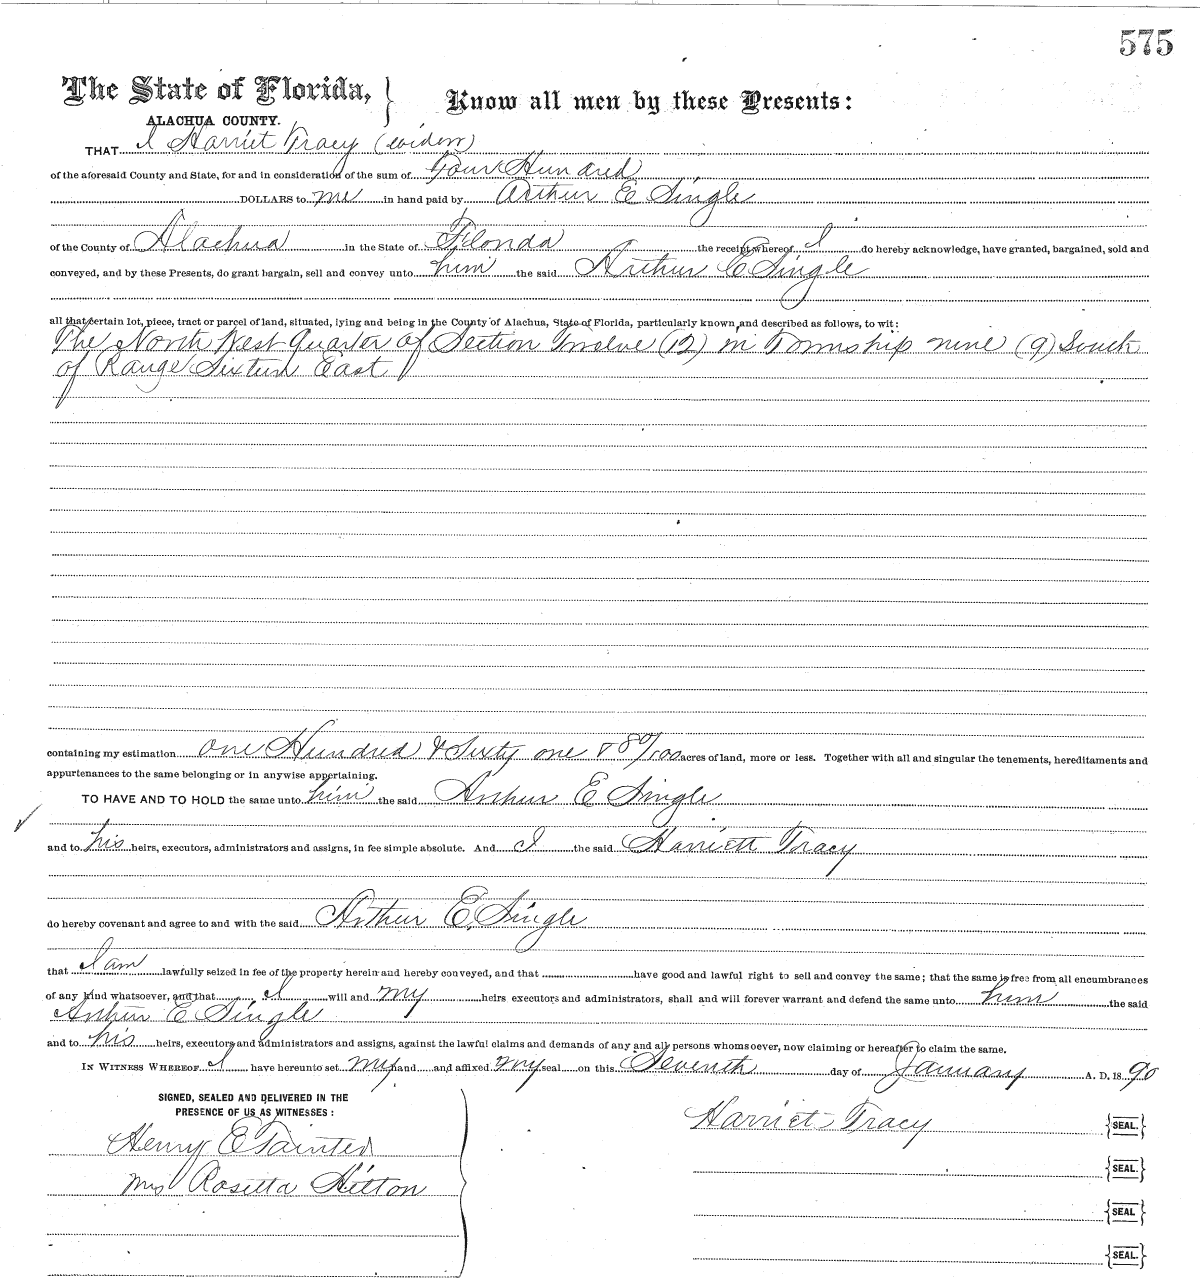 575
The State of Florida,
ALACHUA COUNTY.
Know all men by these Presents:
THAT I Harriet Tracy (widow)
of the aforesaid County and State, for and in consideration of the sum of Four Hundred
DOLLARS to me in hand paid by Arthur E Single
of the County of Alachua in the State of Florida the receipt whereof I do hereby acknowledge, have granted, bargained, sold and
conveyed, and by these Presents, do grant bargain, sell and convey unto him the said Arthur E Single
all that certain lot, piece, tract or parcel of land, situated, lying and being in the County of Alachua, State of Florida, particularly known and described as follows, to wit:
The North West Quarter of Section Twelve (12) in Township nine (9) South
of Range Sixteen East
containing my estimation one Hundred & Sixty one & 80/100 acres of land, more or less. Together with all and singular the tenements, hereditaments and
appurtenances to the same belonging or in anywise appertaining.
TO HAVE AND TO HOLD the same unto him the said Arthur E Single
and to his heirs, executors, administrators and assigns, in fee simple absolute. And I the said Harriett Tracy
do hereby covenant and agree to and with the said Arthur E. Single
that I am lawfully seized in fee of the property herein and hereby conveyed, and that have good and lawful right to sell and convey the same; that the same is free from all encumbrances
of any kind whatsoever, and that I will and my heirs executors and administrators, shall and will forever warrant and defend the same unto him the said
Arthur E Single
and to his heirs, executors and administrators and assigns, against the lawful claims and demands of any and all persons whomsoever, now claiming or hereafter to claim the same.
IN WITNESS WHEREOF I have hereunto set my hand and affixed my seal on this Seventh day of January A. D. 1890
SIGNED, SEALED AND DELIVERED IN THE
PRESENCE OF US AS WITNESSES:
Harriet Tracy SEAL.
Henry E Tainter
SEAL.
Mrs Rosetta Hilton
SEAL
SEAL.